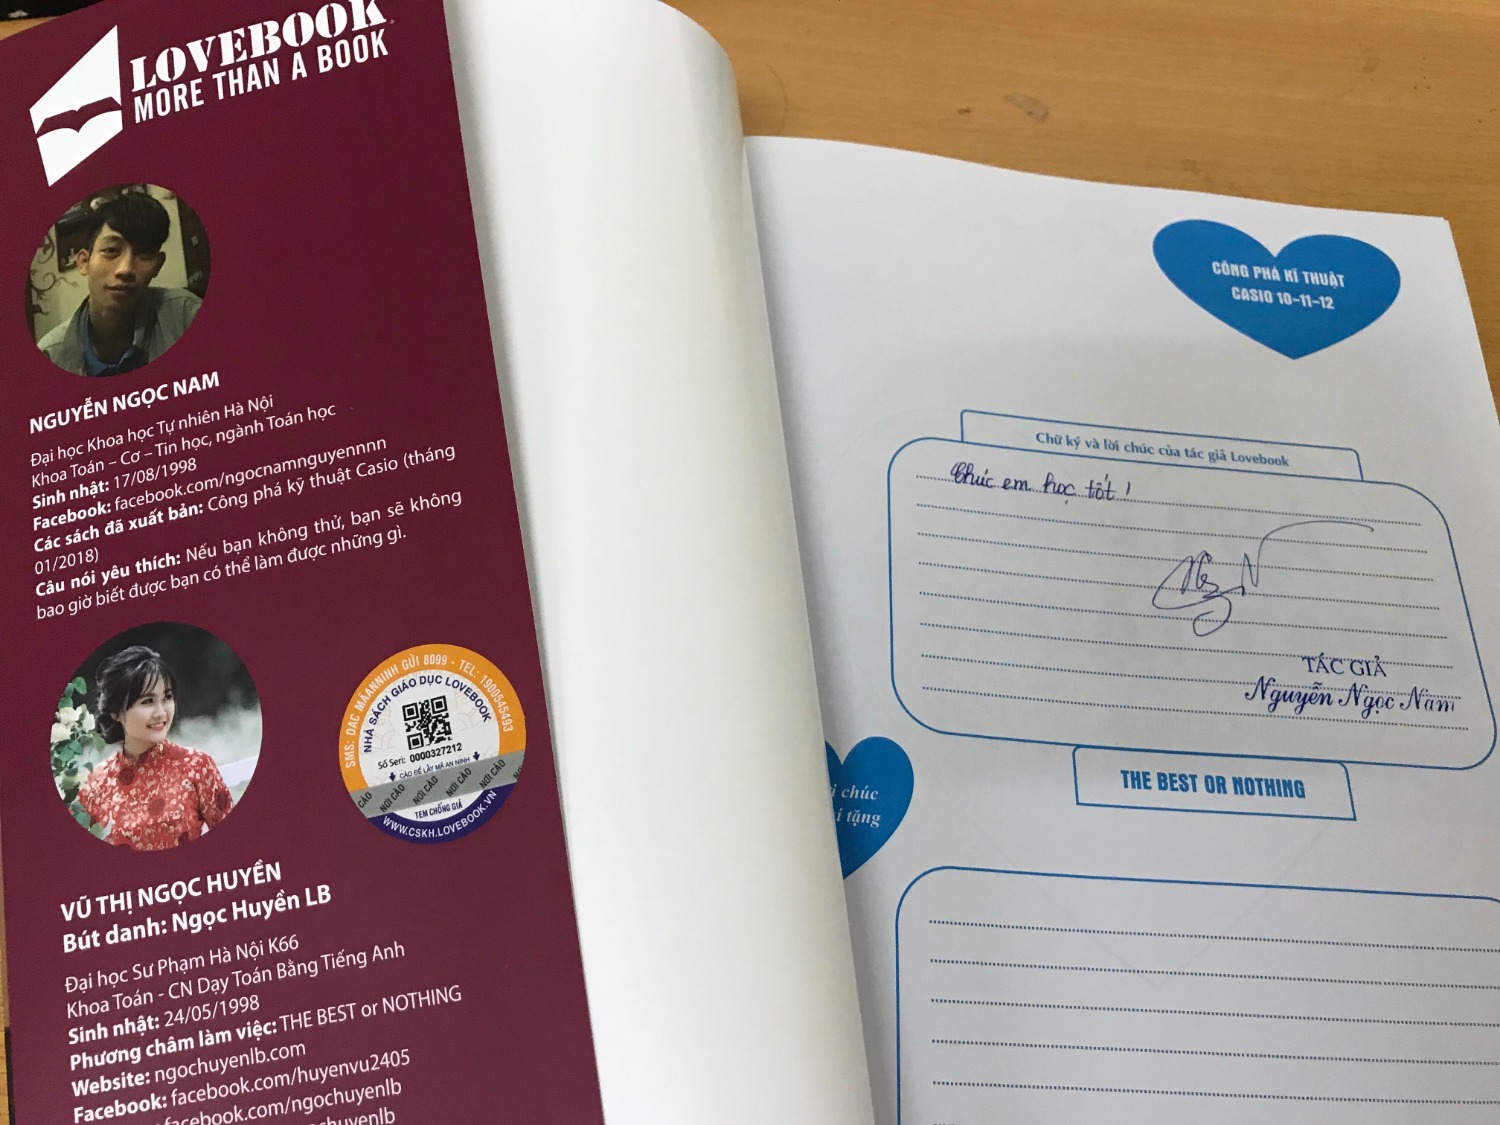 LOVEBOOK
MORE THAN A BOOK
NGUYỄN NGỌC NAM
Đại học Khoa học Tự nhiên Hà Nội
Khoa Toán – Cơ – Tin học, ngành Toán học
Sinh nhật: 17/08/1998
Facebook: facebook.com/ngocnamnguyennnn
Các sách đã xuất bản: Công phá kỹ thuật Casio (tháng
01/2018)
Câu nói yêu thích: Nếu bạn không thử, bạn sẽ không
bao giờ biết được bạn có thể làm được những gì.
SMS: DAC MÃANNINH GỬI 8099 - TEL: 1900545493
NHÀ SÁCH GIÁO DỤC LOVEBOOK
Số Seri: 0000327212
CÀO ĐỂ LẤY MÃ AN NINH
CÀO NƠI CÀO NƠI CÀO NƠI CÀO NƠI CÀO
TEM CHỐNG GIẢ
WWW.CSKH.LOVEBOOK.VN
VŨ THỊ NGỌC HUYỀN
Bút danh: Ngọc Huyền LB
Đại học Sư Phạm Hà Nội K66
Khoa Toán - CN Dạy Toán Bằng Tiếng Anh
Sinh nhật: 24/05/1998
Phương châm làm việc: THE BEST or NOTHING
Website: ngochuyenlb.com
Facebook: facebook.com/huyenvu2405
facebook.com/ngochuyenlb
CÔNG PHÁ KĨ THUẬT
CASIO 10-11-12
Chữ ký và lời chúc của tác giả Lovebook
Chúc em học tốt!
TÁC GIẢ
Nguyễn Ngọc Nam
THE BEST OR NOTHING
chúc
tặng